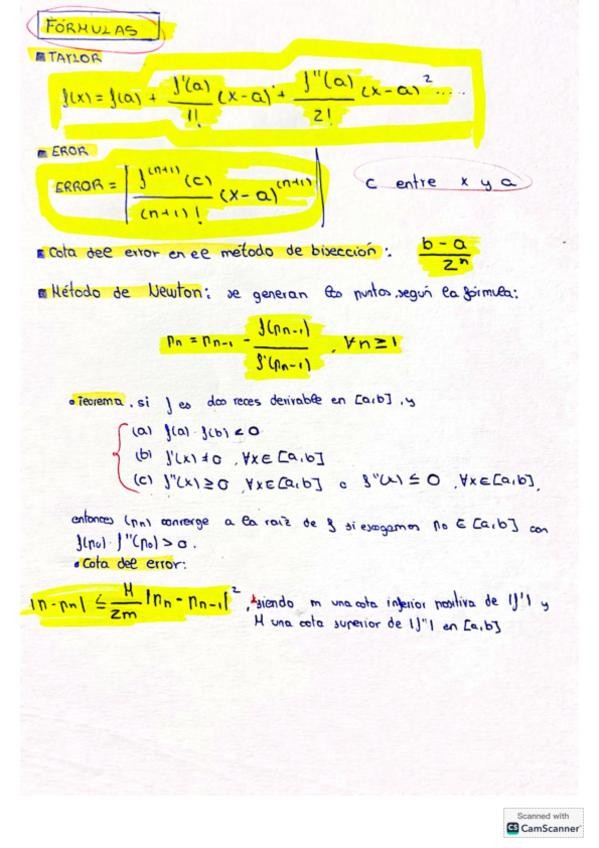 FÓRMULAS
TAYLOR
f(x) = f(a) + f'(a)/1! (x-a) + f''(a)/2! (x-a)² .....
EROR
ERROR = | f^(n+1) (c) / (n+1)! (x-a)^(n+1) | c entre x y a
Cota del error en el método de bisección: b-a / 2^n
Método de Newton: se generan los puntos, según la fórmula:
Pn = Pn-1 - f(Pn-1) / f'(Pn-1) , ∀n≥1
Teorema, si f es dos veces derivable en [a,b], y
(a) f(a)·f(b) < 0
(b) f'(x) ≠ 0, ∀x∈[a,b]
(c) f''(x) ≥ 0, ∀x∈[a,b] o f''(x) ≤ 0, ∀x∈[a,b],
entonces (pn) converge a la raíz de f si escogemos p0 ∈ [a,b] con
f(p0)·f''(p0) > 0.
Cota del error:
|p-pn| ≤ M/2m |pn - pn-1|², siendo m una cota inferior positiva de |f'| y
M una cota superior de |f''| en [a,b]
Scanned with
CS CamScanner